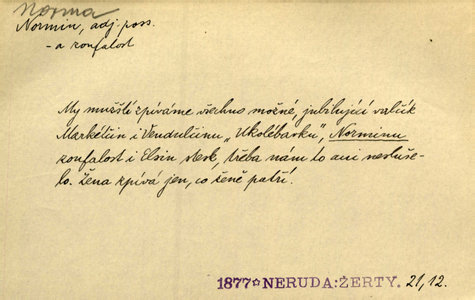 Norma
Normin, adj. poss.
-a zoufalost
My mužští zpíváme všechno možné, jubilující valčík
Markétčin i Vendulčinu „Ukolébavku", Norminu
zoufalost i Elsin stesk, třeba nám to ani neslušelo.
Žena zpívá jen, co ženě patří.
1877☆NERUDA:ŽERTY. 21,12.